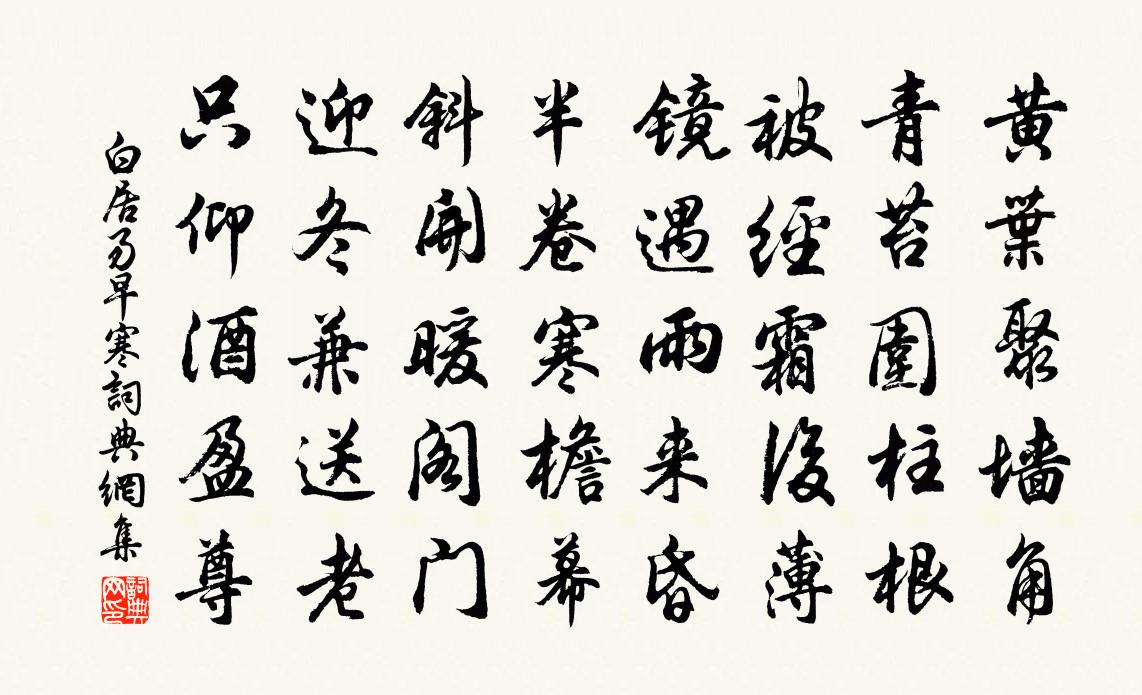 黄葉聚墙角
青苔圍柱根
被經霜後薄
镜遇雨来昏
半卷寒檐幕
斜開暖阁门
迎冬兼送老
只仰酒盈尊
白居易早寒詞典網集
詞典网印